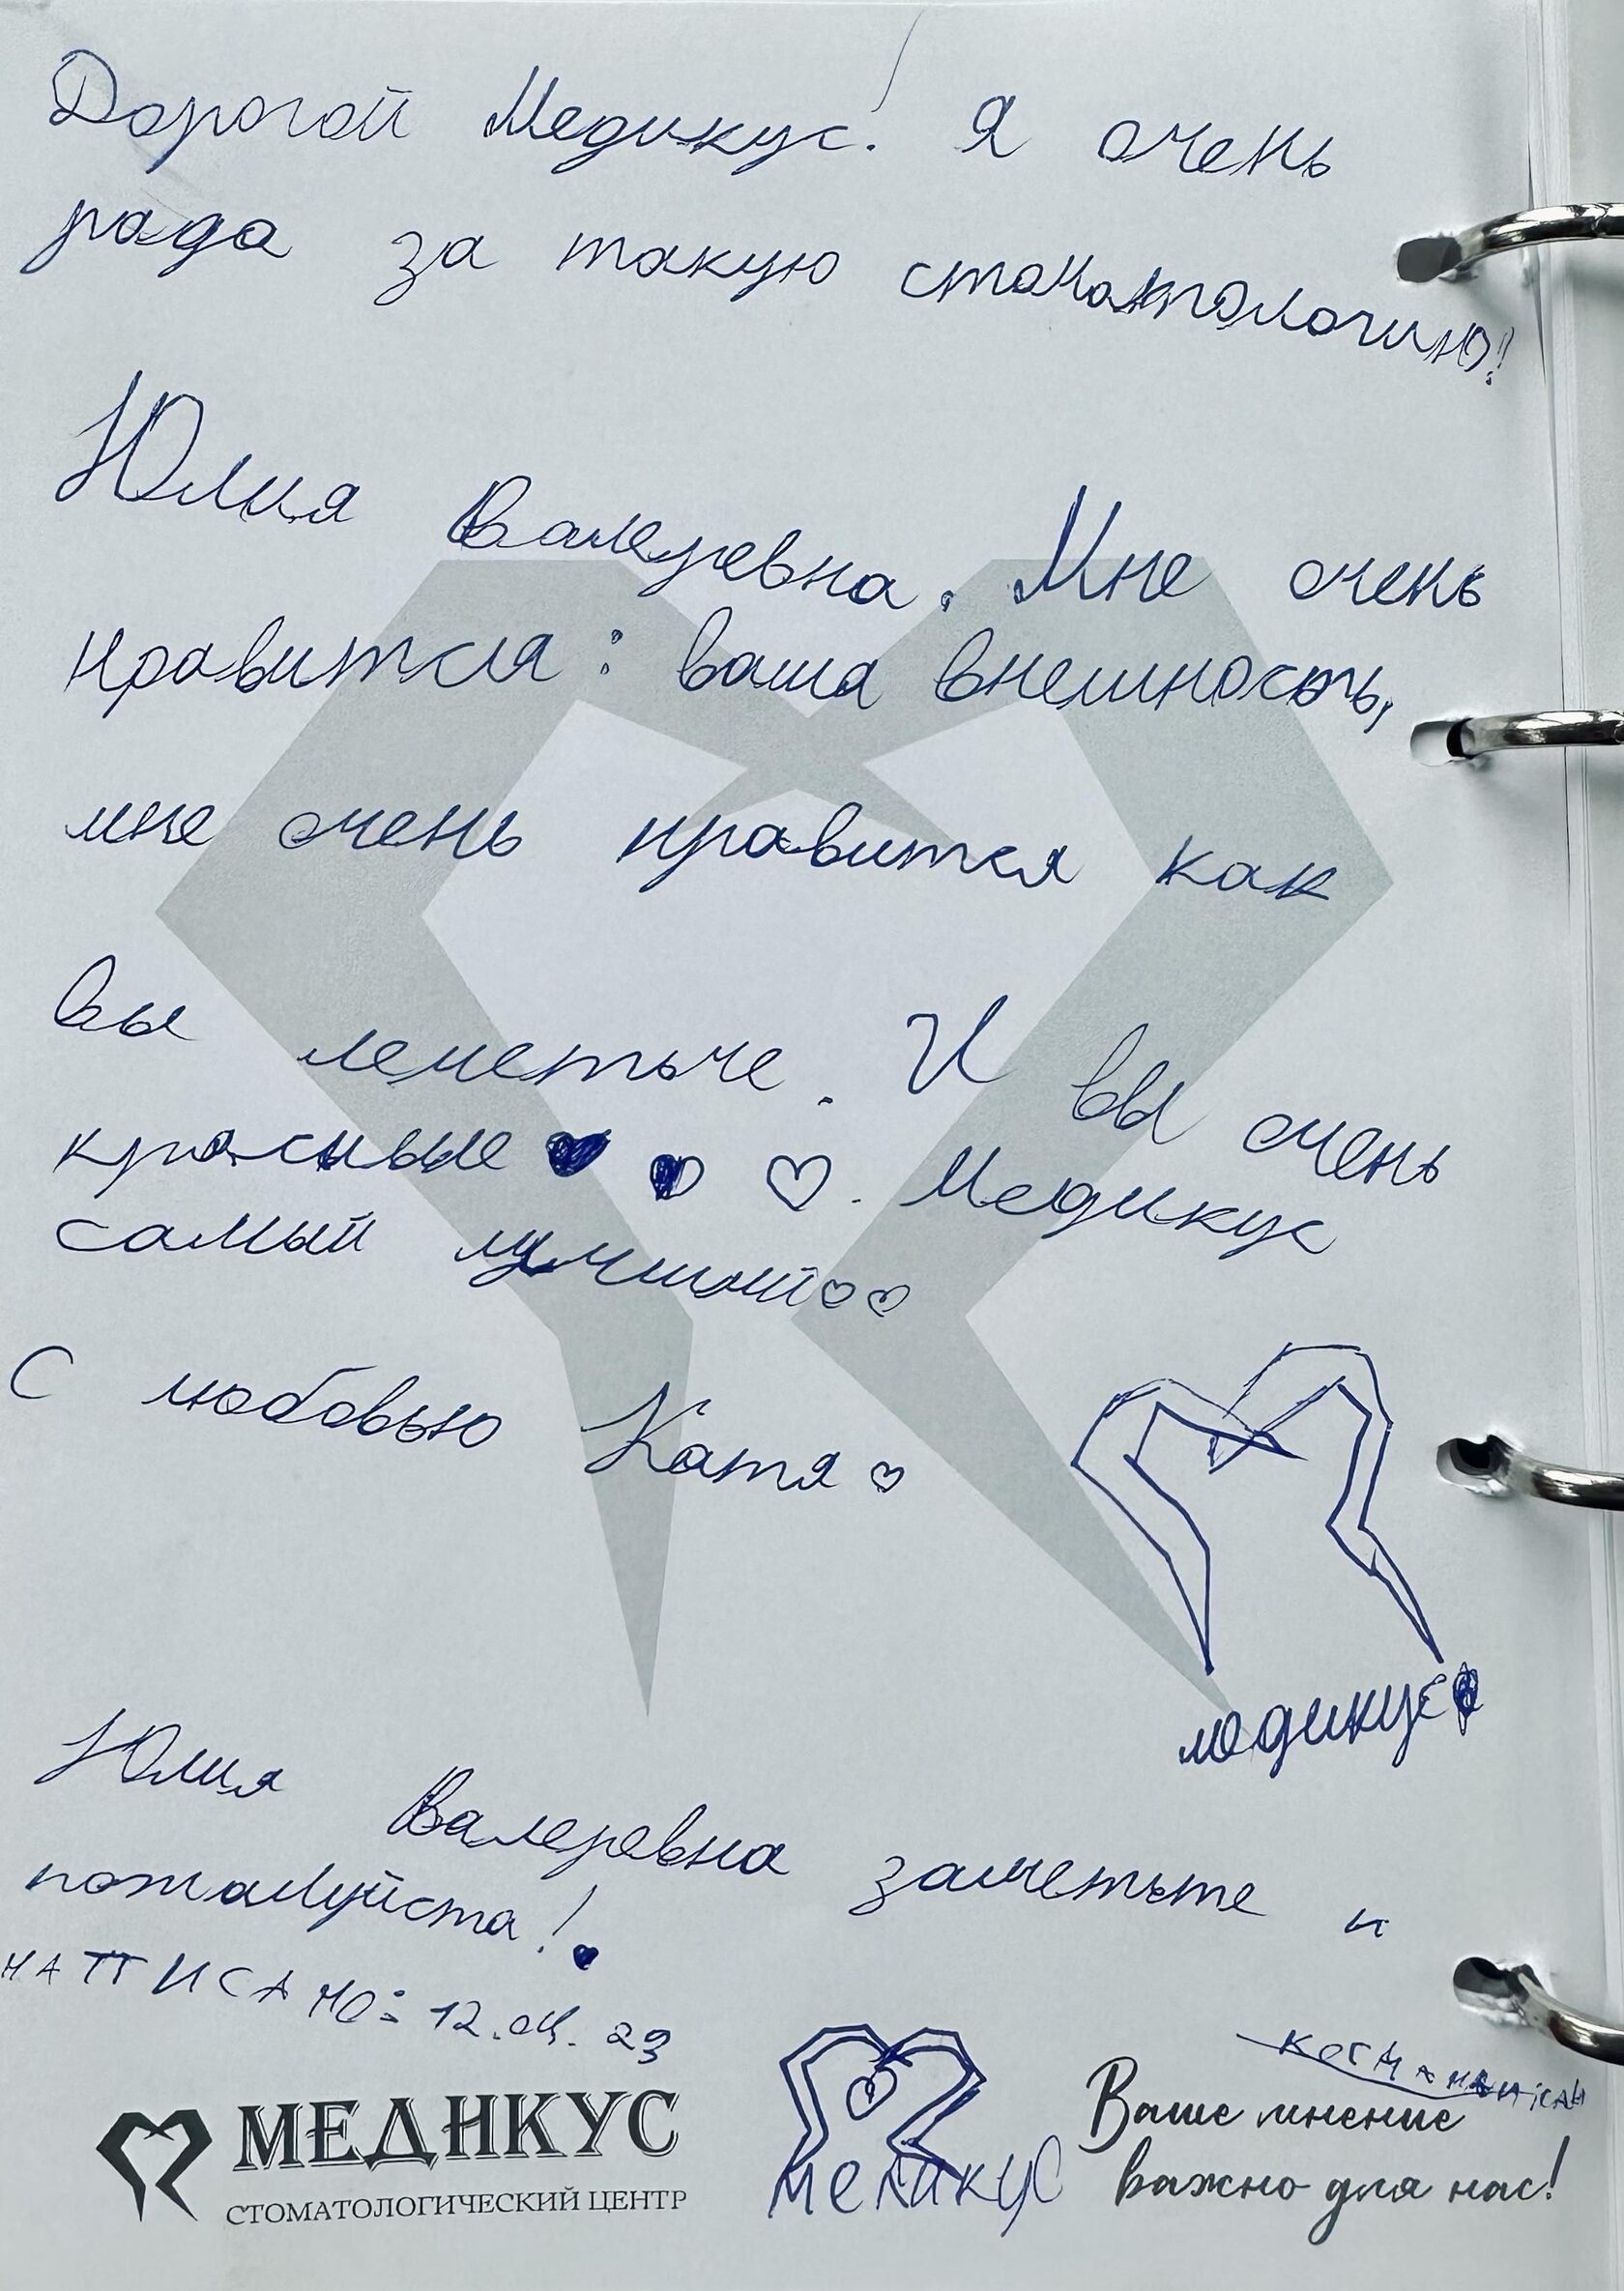 Дорогой Медикус! Я очень
рада за такую стоматологию!
Юлия Валеревна. Мне очень
нравится: ваша внешность,
мне очень нравится как
вы лечетьче. И вы очень
красивые ♥ ♥ ♡. Медикус
самый лучший♡♡
С любовью Катя ♡
медикус
Юлия Валеревна заметьте и
пожалуйста! ♥
НАПИСАНО: 12.04.23
МЕДИКУС
СТОМАТОЛОГИЧЕСКИЙ ЦЕНТР
медикус
Ваше мнение
важно для нас!